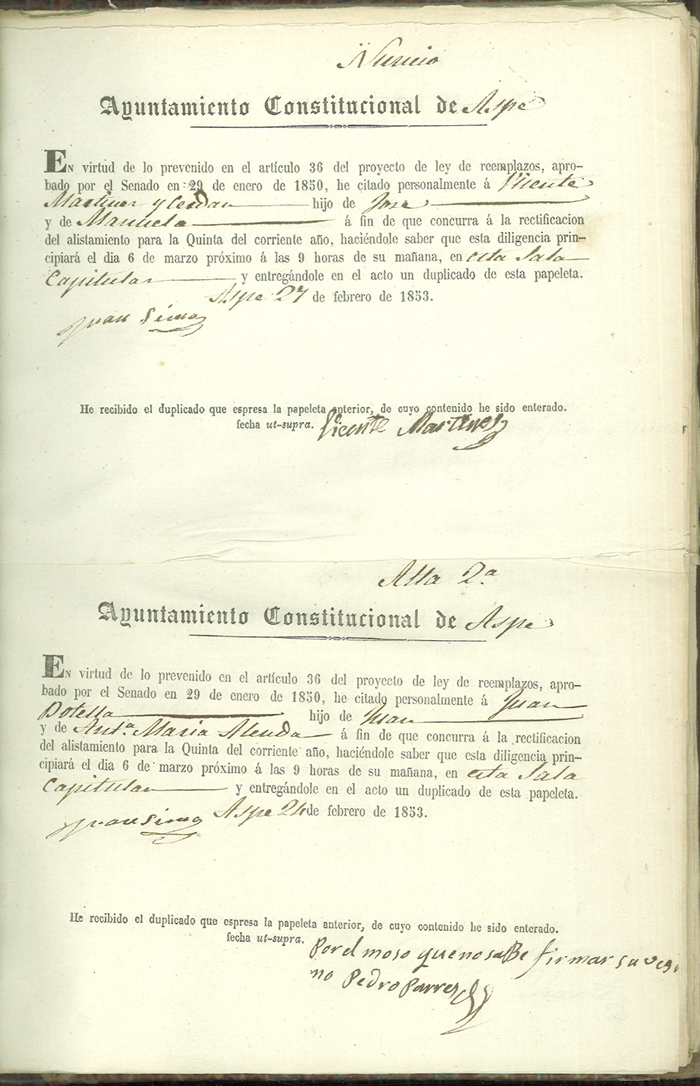 Nuncio
Ayuntamiento Constitucional de Aspe
EN virtud de lo prevenido en el artículo 36 del proyecto de ley de reemplazos, apro-
bado por el Senado en 29 de enero de 1850, he citado personalmente á Vicente
Martinez y Cerdan hijo de Jose
y de Manuela á fin de que concurra á la rectificacion
del alistamiento para la Quinta del corriente año, haciéndole saber que esta diligencia prin-
cipiará el dia 6 de marzo próximo á las 9 horas de su mañana, en esta Sala
Capitular y entregándole en el acto un duplicado de esta papeleta.
Aspe 27 de febrero de 1853.
Juan Simo
He recibido el duplicado que espresa la papeleta anterior, de cuyo contenido he sido enterado.
fecha ut-supra. Vicente Martinez
Alta 2a
Ayuntamiento Constitucional de Aspe
EN virtud de lo prevenido en el artículo 36 del proyecto de ley de reemplazos, apro-
bado por el Senado en 29 de enero de 1850, he citado personalmente á Juan
Botella hijo de Juan
y de Anta Maria Alenda á fin de que concurra á la rectificacion
del alistamiento para la Quinta del corriente año, haciéndole saber que esta diligencia prin-
cipiará el dia 6 de marzo próximo á las 9 horas de su mañana, en esta Sala
Capitular y entregándole en el acto un duplicado de esta papeleta.
Juan Simo Aspe 24 de febrero de 1853.
He recibido el duplicado que espresa la papeleta anterior, de cuyo contenido he sido enterado.
fecha ut-supra. Por el moso que no sabe firmar su vesi
no Pedro Parres